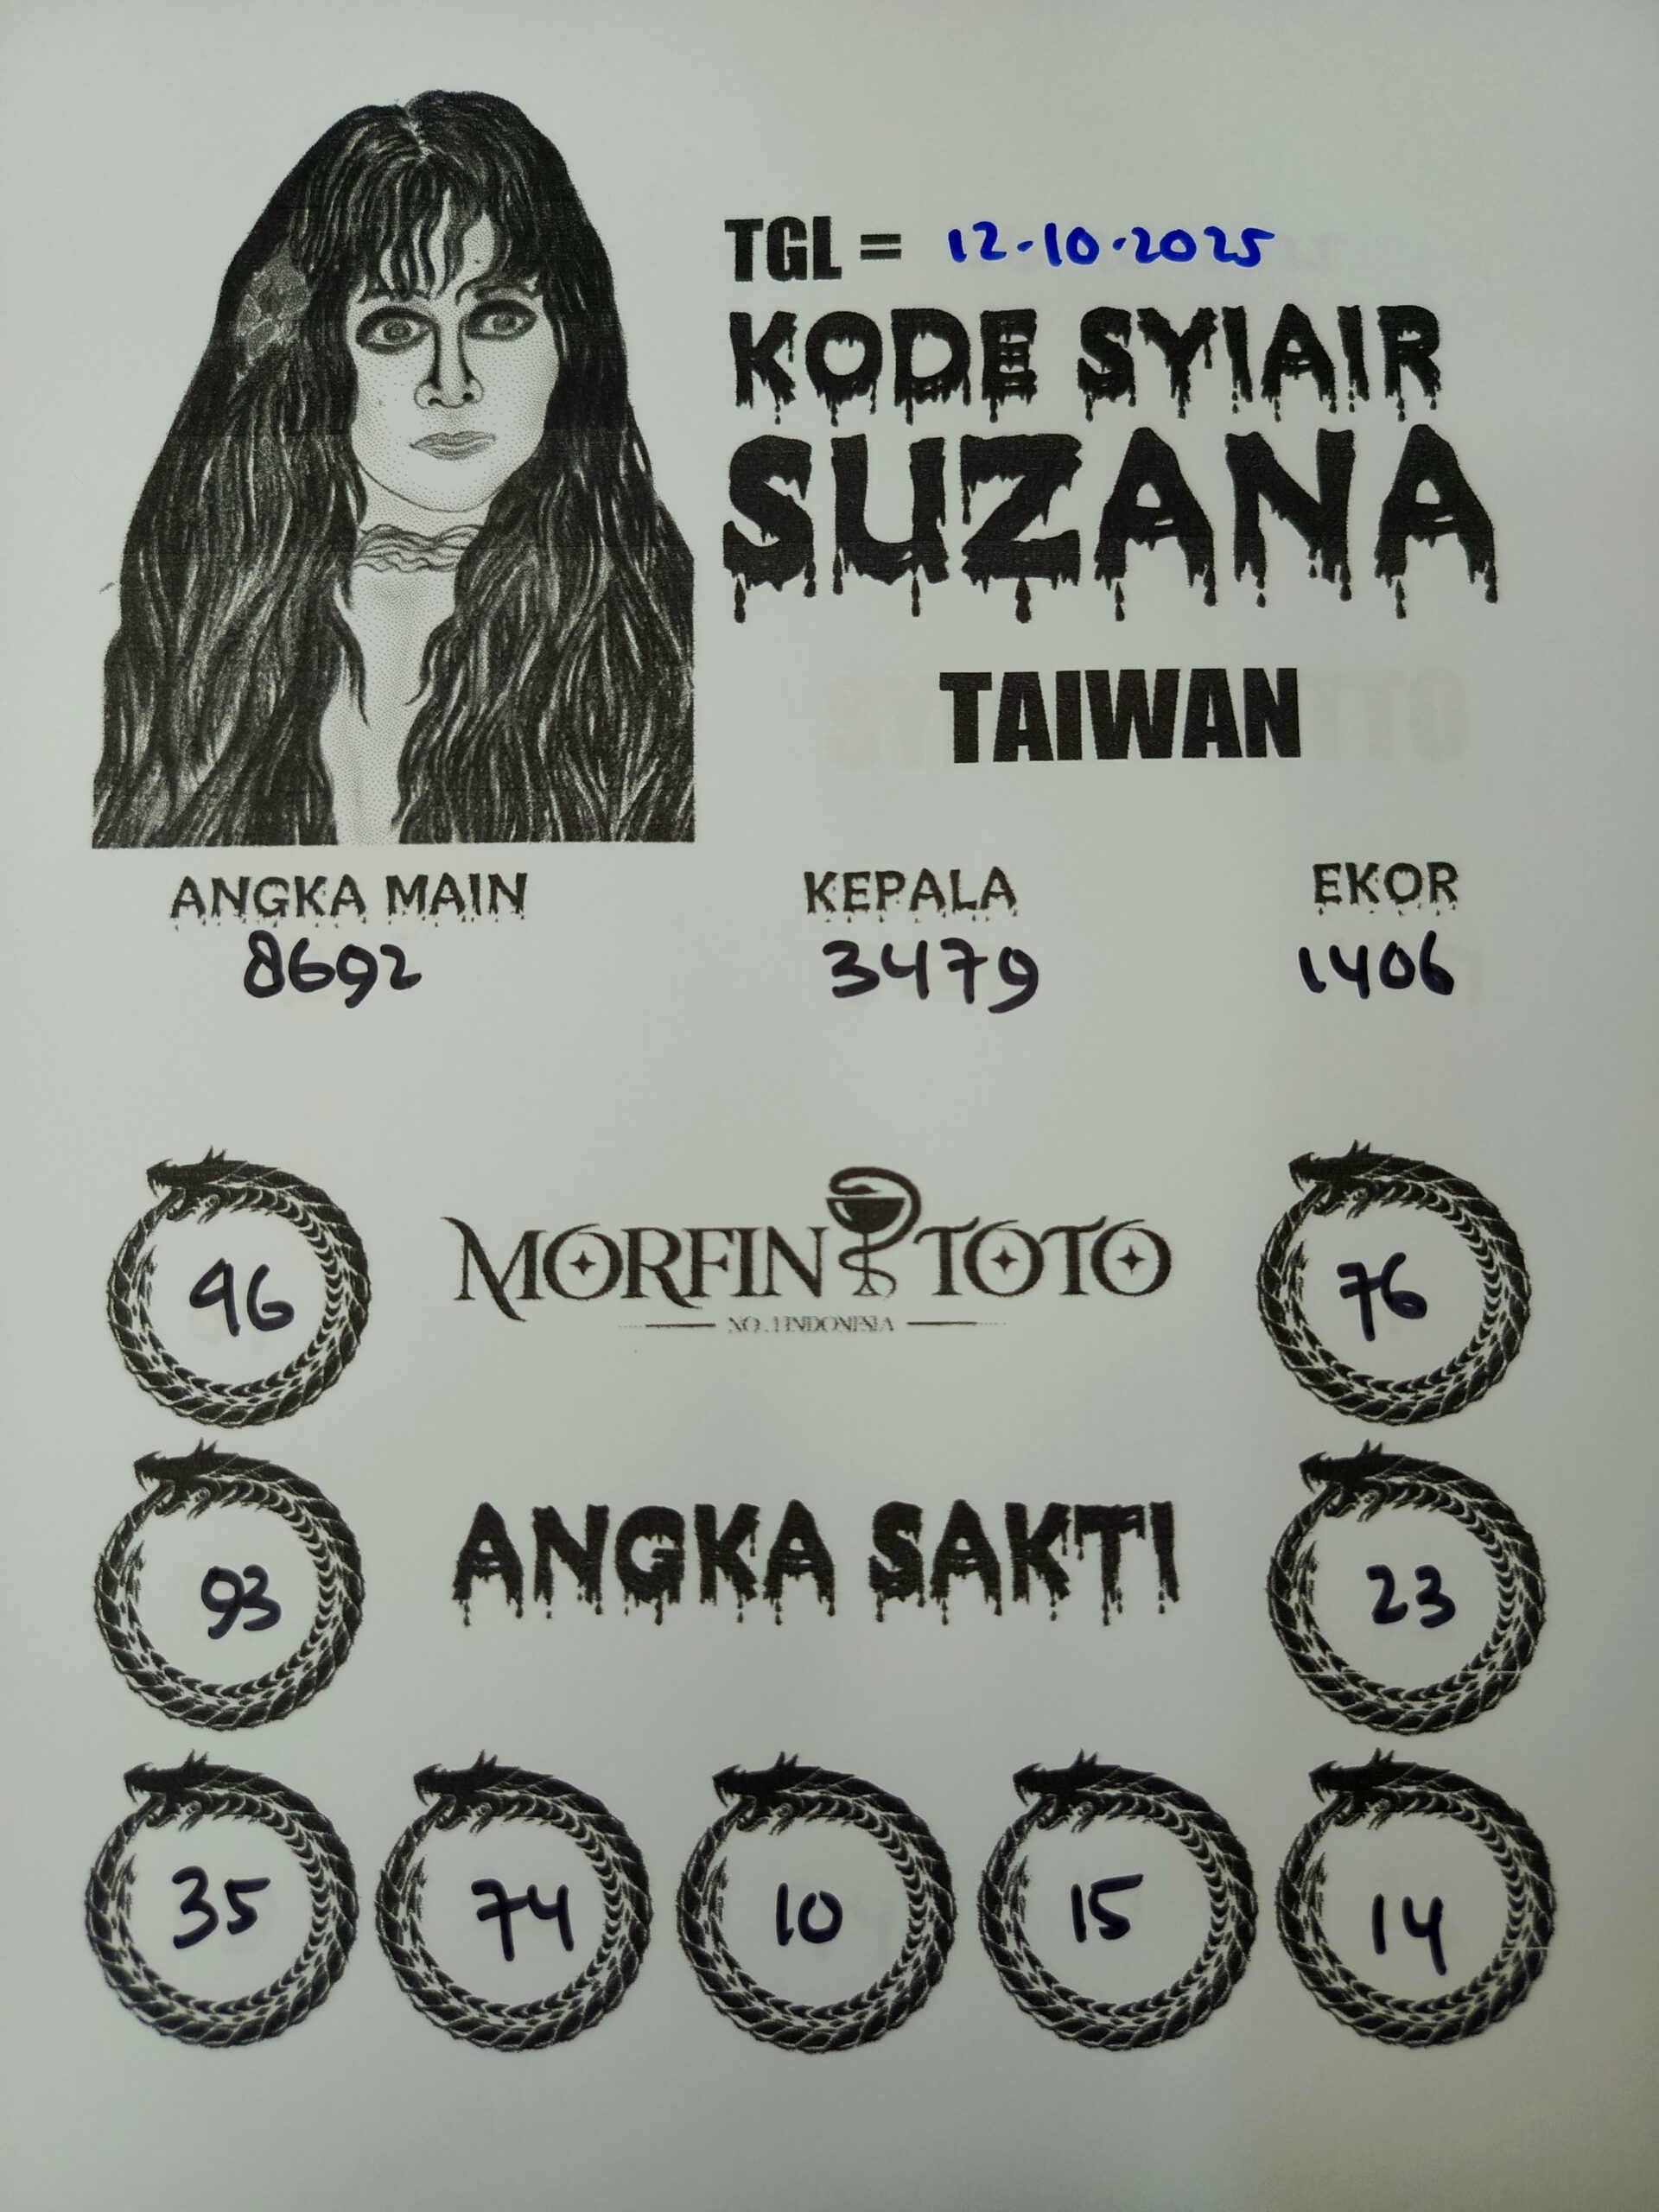 TGL = 12-10-2025
KODE SYIAIR
SUZANA
TAIWAN
ANGKA MAIN KEPALA EKOR
8692 3479 1406
96 MORFIN TOTO 76
NO.1 INDONESIA
93 ANGKA SAKTI 23
35 74 10 15 14